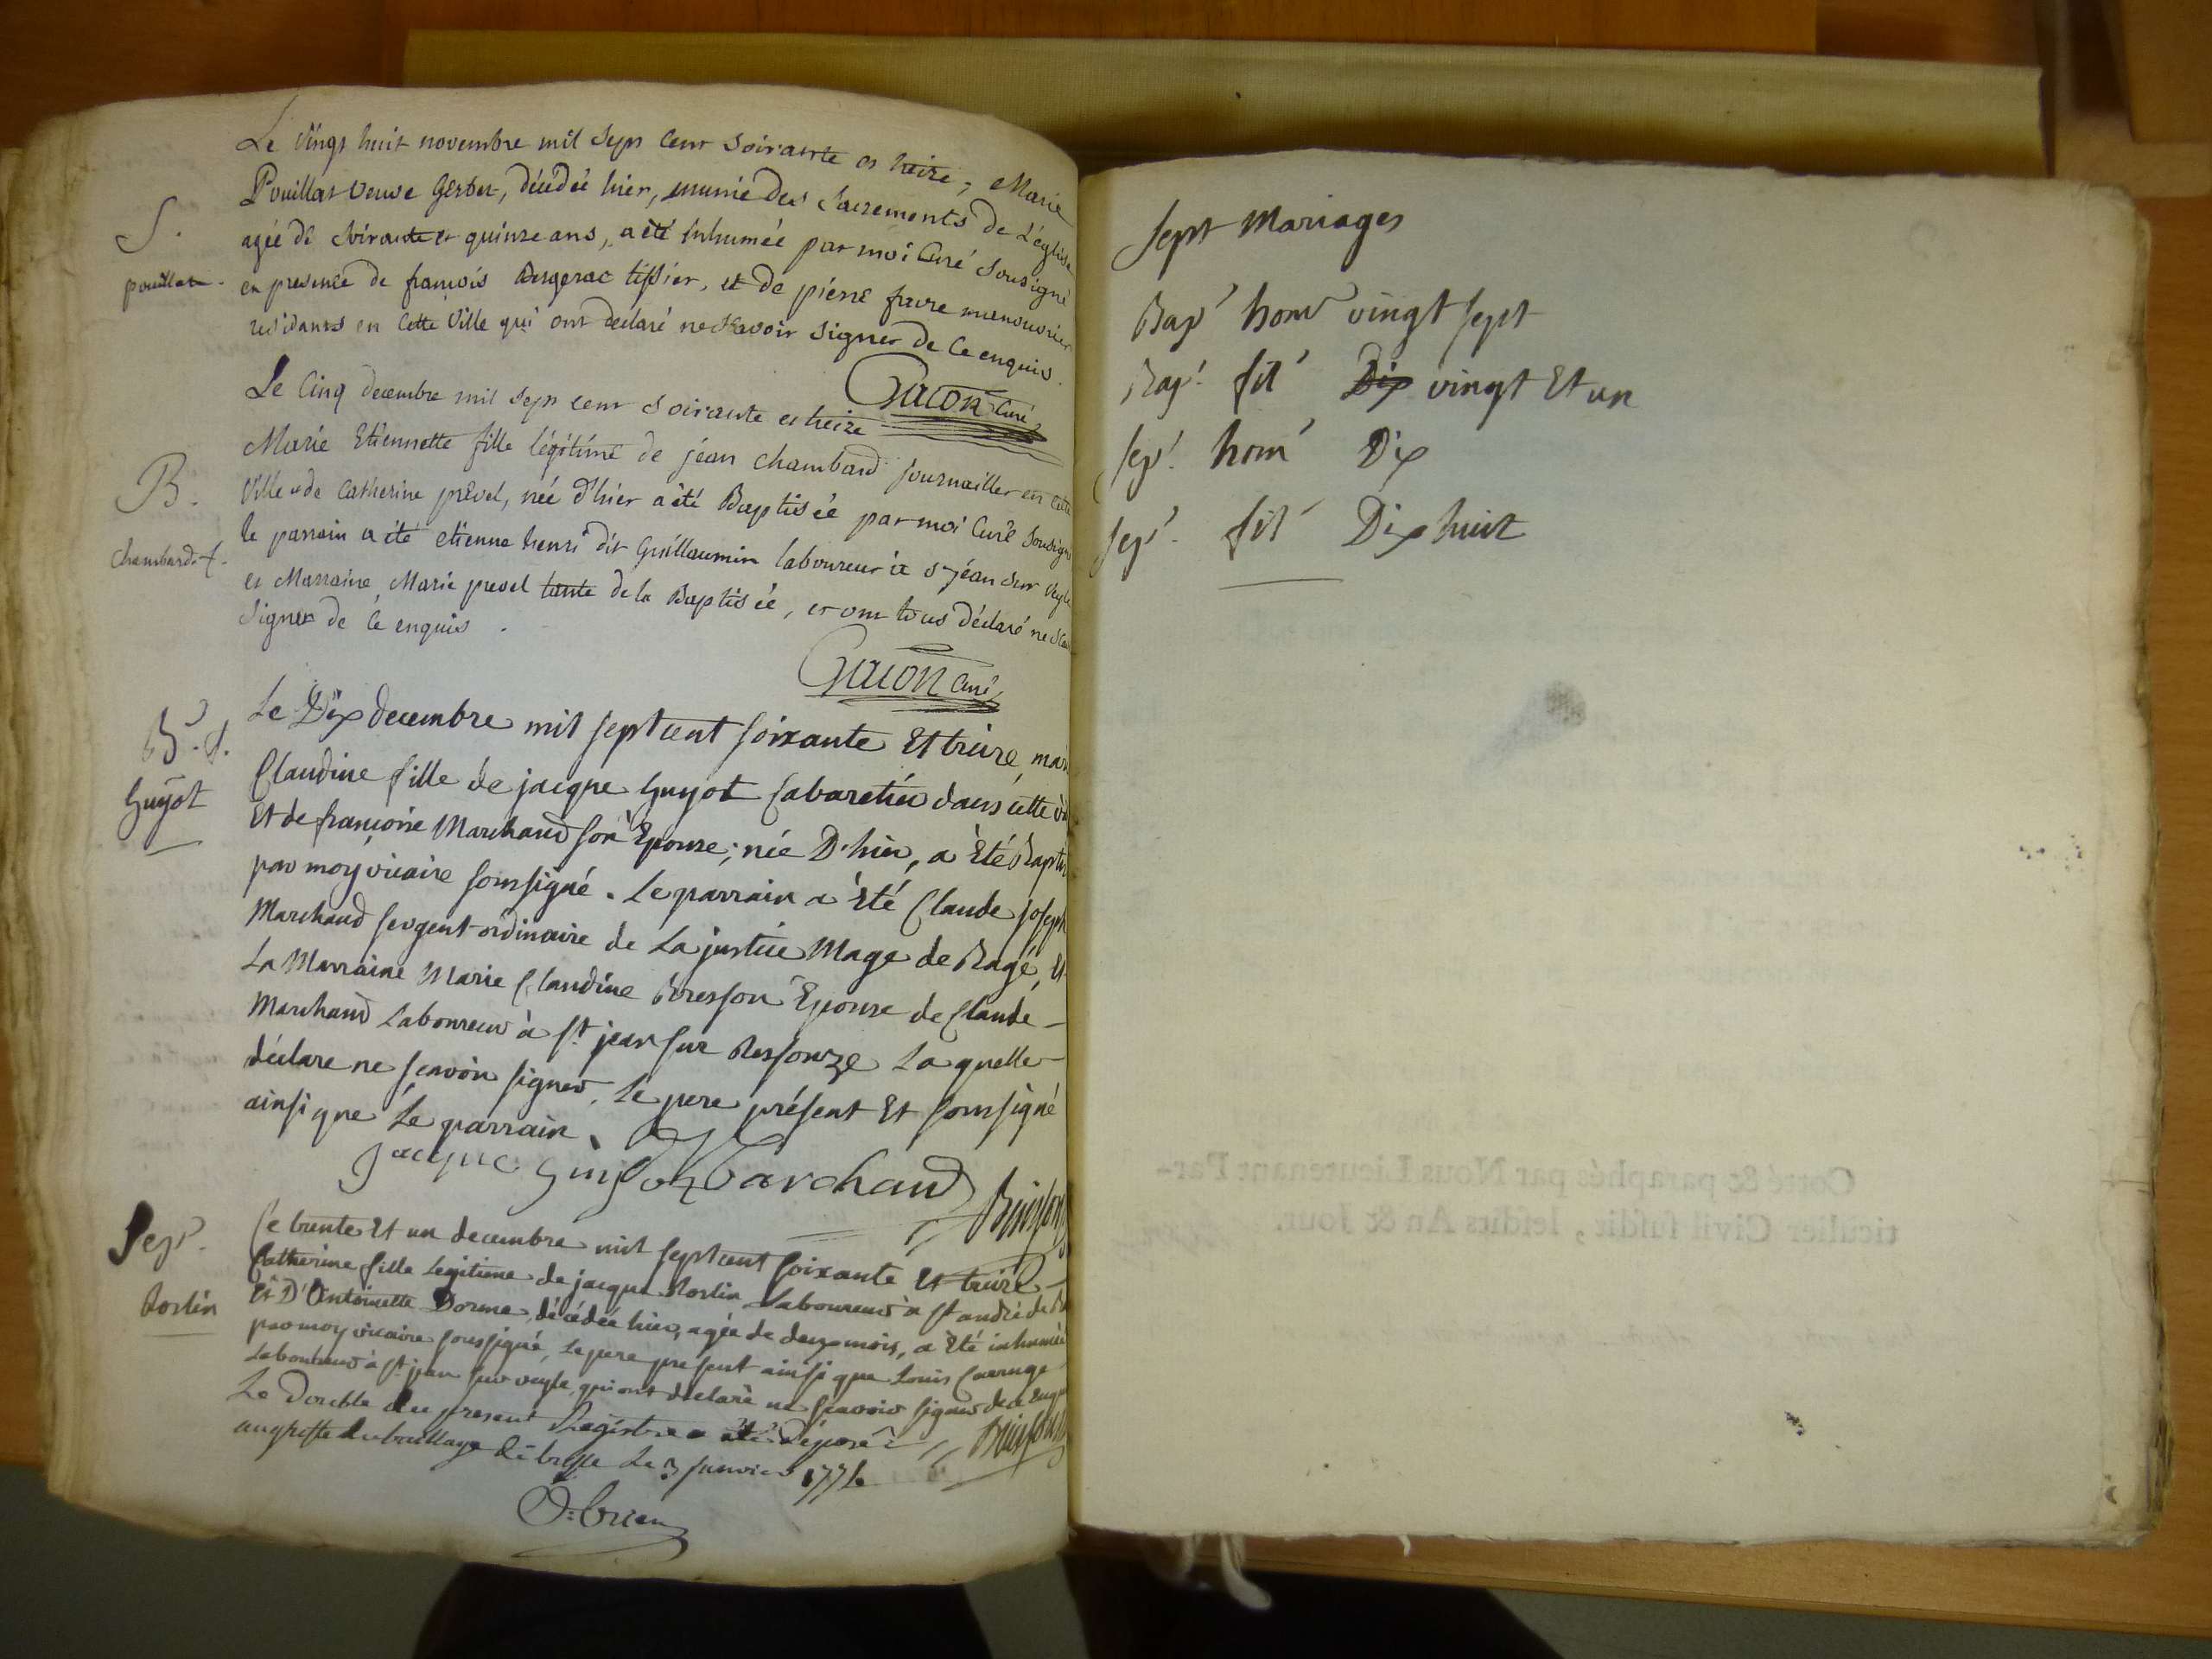 Le vingt huit novembre mil sept cent soixante et treize, Marie
Pouillat veuve Gerbet, décedée hier, munie des Sacrements de L'église
S.
agée de soixante et quinze ans, a été inhumée par moi Curé Sousigné
pouillat.
en presence de francois Bergerac tissier, et de piérre favre manouvrier
residants en cette Ville qui ont declaré ne sçavoir signer de ce enquis.
Gacon Curé
Le Cinq decembre mil sept cent soixante et treize
Marie Etiennette fille légitime de jéan chambard journailler en cette
B.
Ville et de Catherine prevel, née d'hier a été Baptisée par moi Curé Sousigné
Chambard. f.
le parrain a été etienne henri dit Guillaumin laboureur à st jéan sur Veyle
et Marraine Marie prevel tante de la Baptisée, et ont tous déclaré ne sca
signer de ce enquis.
Gacon Curé
Le Dix decembre mil sept cent soixante Et treize, mar
B. f.
Guyot
Claudine fille de jacque Guyot Cabaretier dans cette vi
Et de françoise Marchand son Epouse; née D'hier, a Eté Baptis
par moy vicaire soussigné. Le parrain a Eté Claude joseph
Marchand sergent ordinaire de La justice Mage de Bagé, Et
La Marraine Marie Claudine Bresson Epouse de Claude
Marchand Laboureur à st. jean sur Ressouze Laquelle
déclare ne scavoir signer, Le pere présent Et soussigné
ainsi que Le parrain.
Jacque Guyot Marchand
Buisson
Sep.
Ce trente Et un decembre mil sept cent soixante Et treize
Rostin
Catherine fille Legitime de jacque Rostin Laboureur à st andré de B
Et D'Antoinette Dorme, décédée hier, agée de deux mois, a Eté inhumée
par moy vicaire soussigné, Le pere present ainsi que Louis Carruge
Laboureur à st. jean sur veyle, qui ont déclaré ne scavoir signer de ce Enqu
Buisson
Le double du present Registre a été déposé
au greffe du bailliage de bresse Le 3 janvier 1774
Sept Mariages
Bap. hom. vingt sept
Bap. fil. Dix vingt Et un
Sep. hom. Dix
Sep. fil. Dix huit
Cotté & paraphés par Nous Lieutenant Par-
ticulier Civil susdit, lesdits An & Jour.